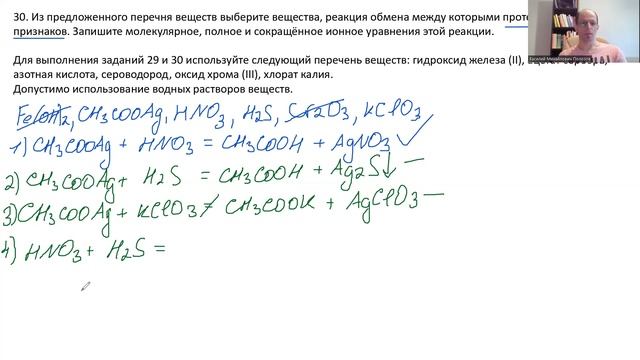 30. Из предложенного перечня веществ выберите вещества, реакция обмена между которыми
признаков. Запишите молекулярное, полное и сокращённое ионное уравнения этой реакции.
Для выполнения заданий 29 и 30 используйте следующий перечень веществ: гидроксид железа (II),
азотная кислота, сероводород, оксид хрома (III), хлорат калия.
Допустимо использование водных растворов веществ.
Fe(OH)2, CH3COOAg, HNO3, H2S, Cr2O3, KClO3
1) CH3COOAg + HNO3 = CH3COOH + AgNO3 ✓
2) CH3COOAg + H2S = CH3COOH + Ag2S↓ —
3) CH3COOAg + KClO3 ≠ CH3COOK + AgClO3 —
4) HNO3 + H2S =